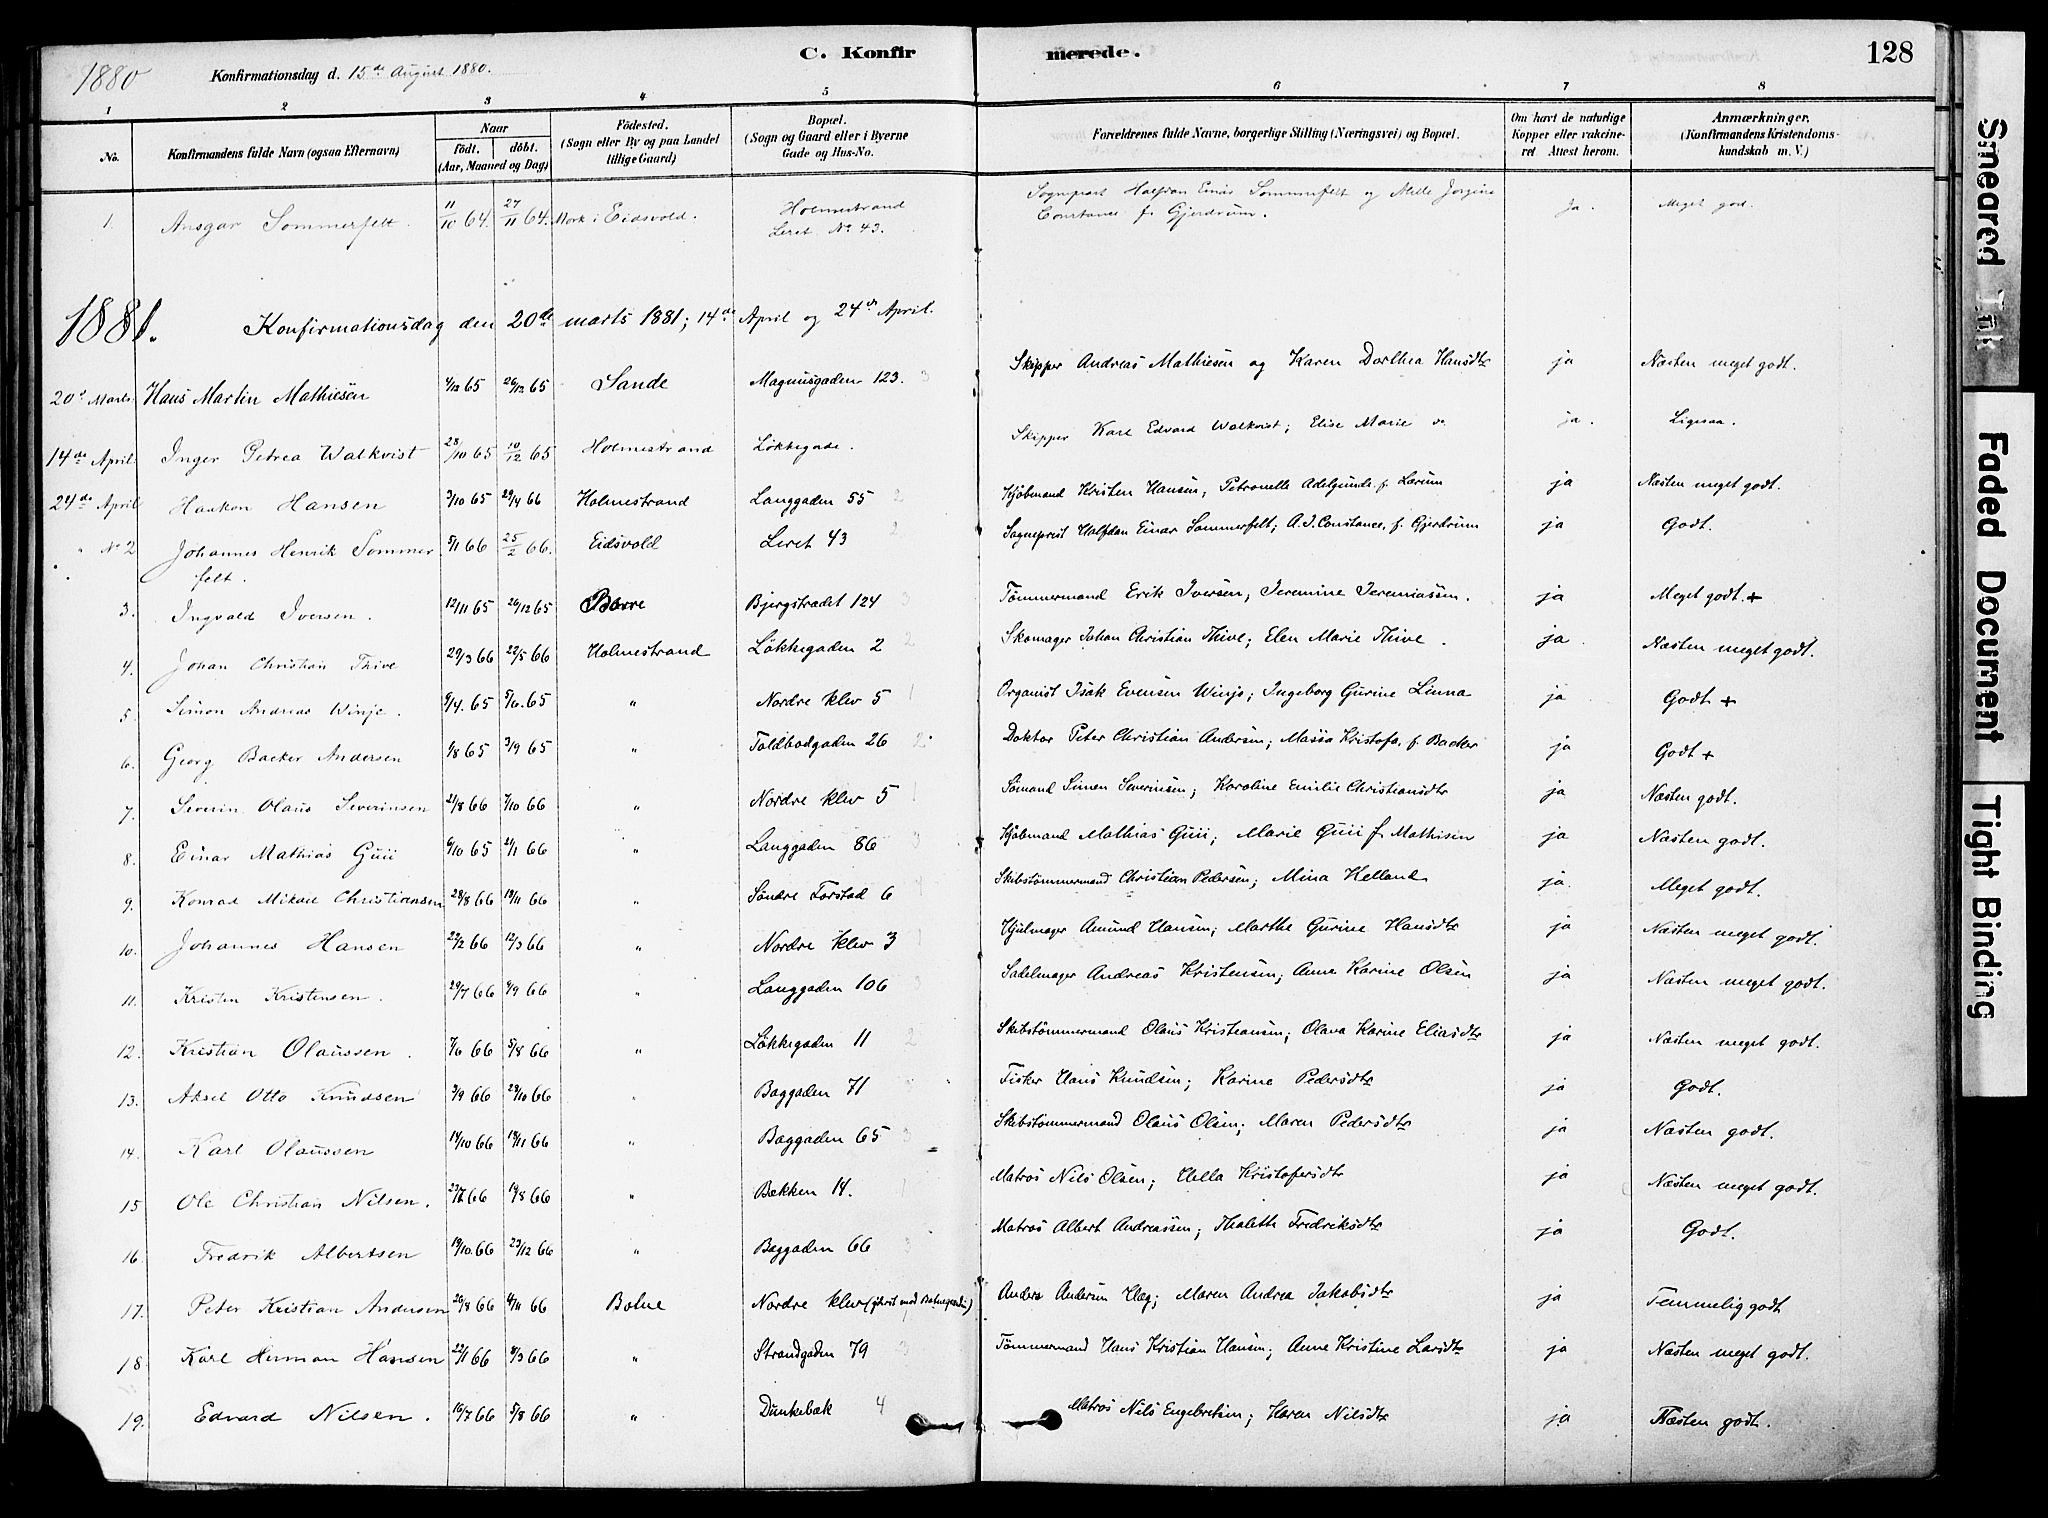 1880
Konfirmationsdag d. 15de August 1880.
C. Konfirmerede.
128
1 2 3 4 5 6 7 8
No.
Konfirmandens fulde Navn (ogsaa Efternavn)
Naar
født. døbt.
(Aar, Maaned og Dag)
Fødested.
(Sogn eller By og paa Landet
tillige Gaard)
Bopæl.
(Sogn og Gaard eller i Byerne
Gade og Hus-No.
Forældrenes fulde Navne, borgerlige Stilling (Næringsvei) og Bopæl.
Om havt de naturlige
Kopper eller vakcine-
ret. Attest herom.
Anmærkninger.
(Konfirmandens Kristendoms-
kundskab m. V.)
1. Ansgar Sommerfelt. 11/10 64. 27/11 64. Mork i Eidsvold. Holmestrand Leret No 43. Sogneprest Halfdan Einar Sommerfelt og Constance f. Gjerdrum. Ja. Meget god.
1881. Konfirmationsdag den 20de marts 1881; 14de April og 24de April.
20de Marts. Hans Martin Mathiesen 4/12 65 26/12 65 Sande Magnusgaden 123. Skipper Andreas Mathiesen og Karen Dorthea Hansdtr ja Næsten meget godt.
14de April. Inger Petrea Walkvist 28/10 65 10/12 65 Holmestrand Løkkegade. Skipper Karl Edvard Walkvist; Elise Marie ja. Ligesaa.
24de April Haakon Hansen 3/10 65 29/4 66 Holmestrand Langgaden 55 2 Kjøbmand Kristen Hansen, Petronelle Adelgunde f. Lærum ja Næsten meget godt.
" No 2 Johannes Henrik Sommerfelt. 5/1 66 25/2 66. Eidsvold Leret 43 2 Sogneprest Halfdan Einar Sommerfelt; A. J. Constance f. Gjerdrum ja Godt.
3. Ingvald Iversen. 12/11 65 26/12 65 Borre Bjergstrædet 124 3 Tømmermand Erik Iversen; Jeremine Jeremiassen. ja Meget godt. +
4. Johan Christian Thive 29/3 66 22/5 66 Holmestrand Løkkegaden 2 2 Skomager Johan Christian Thive; Elen Marie Thive. ja. Næsten meget godt.
5. Simon Andreas Winje. 9/4. 65 5/6. 65 " Nordre klev 5 1 Organist Isak Evensen Winje; Ingeborg Gurine Linna ja Godt +
6. Georg Backer Andersen 1/8 65 3/9 65 " Toldbodgaden 26 2 Doktor Peter Christian Andersen; Massa Kristofa. f. Backer ja Godt +
7. Severin Olaus Severinsen 21/8 66 7/10 66 " Nordre klev 5 1 Sømand Simen Severinsen; Karoline Emilie Christiansdtr ja Næsten godt.
8. Einar Mathias Guii 6/10 65 21/1 66 " Langgaden 86 3 Kjøbmand Mathias Guii; Marie Guii f. Mathisen ja Næsten godt.
9. Konrad Mikael Christiansen 28/8 66 18/11 66 " Søndre Forstad 6 Skibstømmermand Christian Pedersen; Mina Helland ja. Meget godt.
10. Johannes Hansen 22/2 66 12/3 66 " Nordre klev 3 Hjulmager Amund Hansen; Marthe Gurine Hansdtr ja Næsten meget godt.
11. Kristen Kristensen. 29/7 66 9/9 66 " Langgaden 106 Sadelmager Andreas Kristensen; Anne Karine Olsen ja Næsten meget godt.
12. Kristian Olaussen. 7/6 66 5/8 66 " Løkkegaden 11 2 Skibstømmermand Olaus Kristiansen; Olava Karine Eliasdtr ja Næsten meget godt.
13. Aksel Otto Knudsen 3/9 66 28/10 66 " Baggaden 71 Fisker Hans Knudsen; Karine Pedersdtr ja Godt.
14. Karl Olaussen 14/10 66 18/11 66 " Baggaden 65 3 Skibstømmermand Olaus Olsen; Maren Pedersdtr ja Næsten godt.
15 Ole Christian Nilsen. 23/7 66 19/8 66 " Bekken 14. Matros Nils Olsen; Hella Kristofersdtr ja Næsten meget godt.
16. Fredrik Albertsen 19/10. 66 23/12 66 " Baggaden 66 3 Matros Albert Andreassen; Thalette Fredriksdtr ja Godt.
17. Peter Kristian Andersen 26/8 66 4/11 66 Botne Nordre klev Anders Andersen Hæg; Maren Andrea Jakobsdtr ja Temmelig godt
18. Karl Herman Hansen 22/1 66 8/3 66 " Strandgaden 79 3 Tømmermand Hans Kristian Hansen; Anne Kristine Larsdtr ja Næsten meget godt.
19. Edvard Nilsen. 16/7 66 5/8 66 " Dunkebæk 4 Matros Nils Engebretsen; Karen Nilsdtr ja Næsten godt.
Smeared Ink
Faded Document
Tight Binding